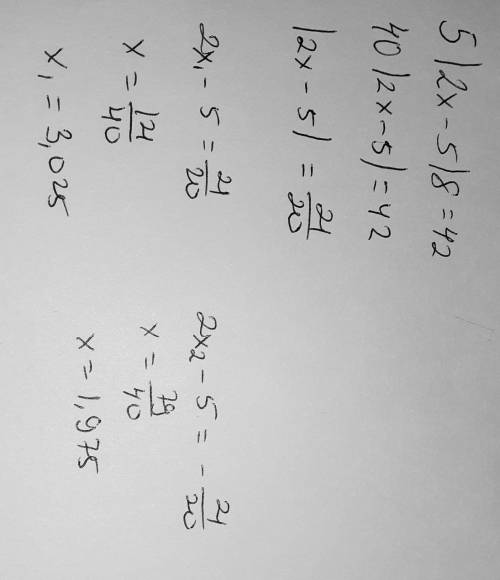 5|2x-5|8=42
40|2x-5|=42
|2x-5|=21/20
2x₁-5=21/20
x=121/40
x₁=3,025
2x₂-5=-21/20
x=79/40
x=1,975